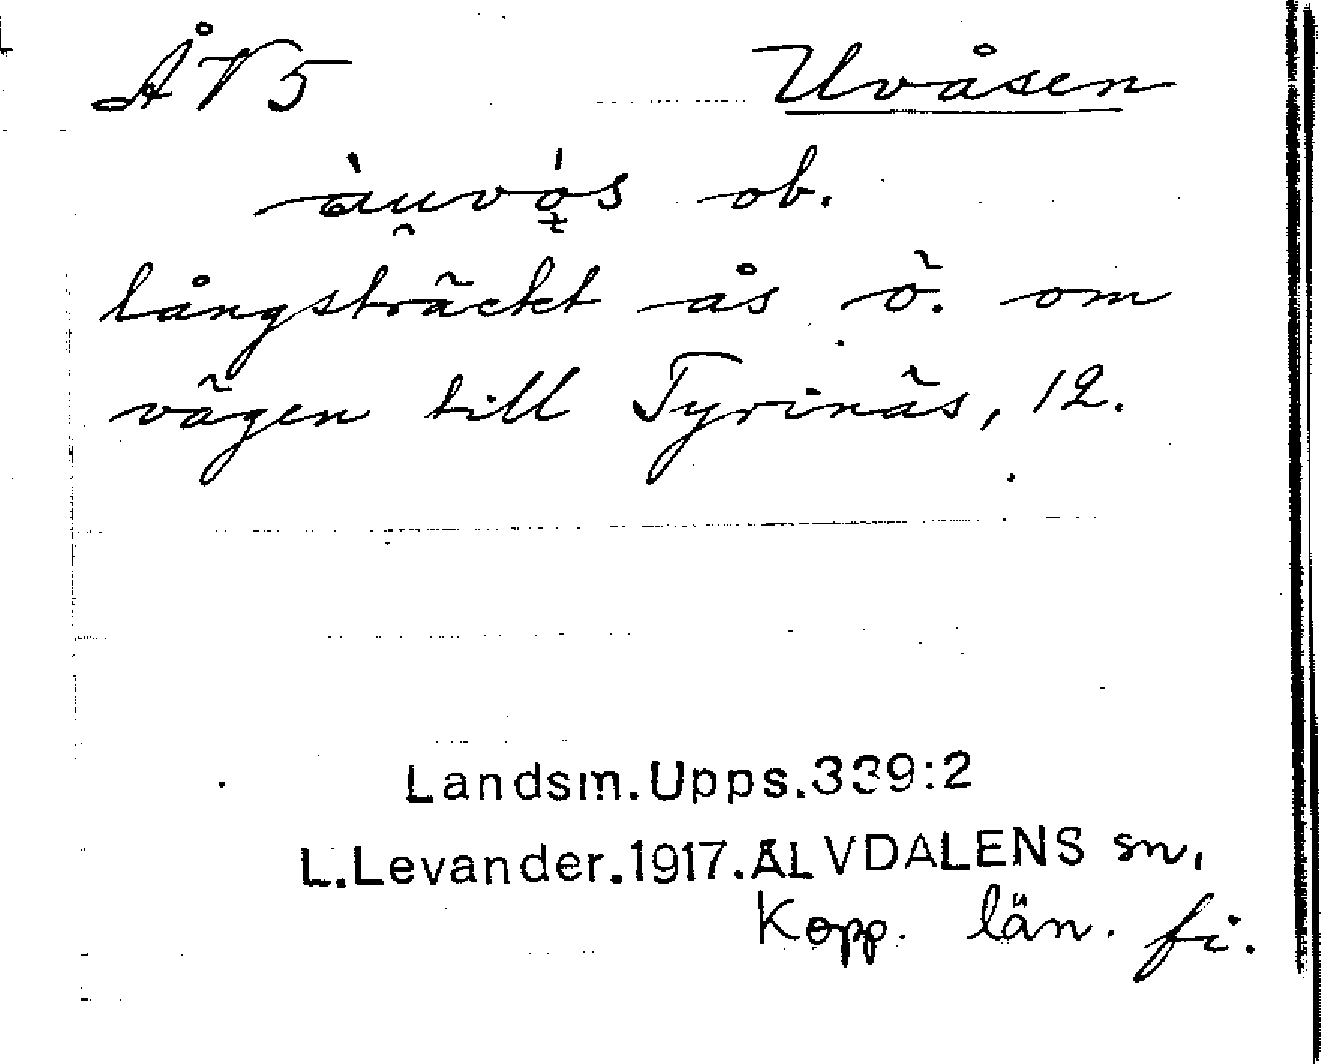 ÅV5 Uvåsen
àu̯vǫ́s ob.
långsträckt ås ö. om
vägen till Tyrinäs, 12.
Landsm.Upps.339:2
L.Levander.1917.ÄLVDALENS sn,
Kopp. län. fi.